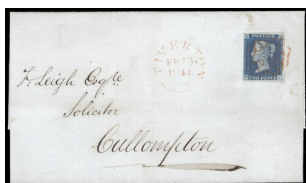 TIVERTON
FE 13
1841
POSTAGE
TWO PENCE
F. Leigh Esqre.
Solicitor
Cullompton